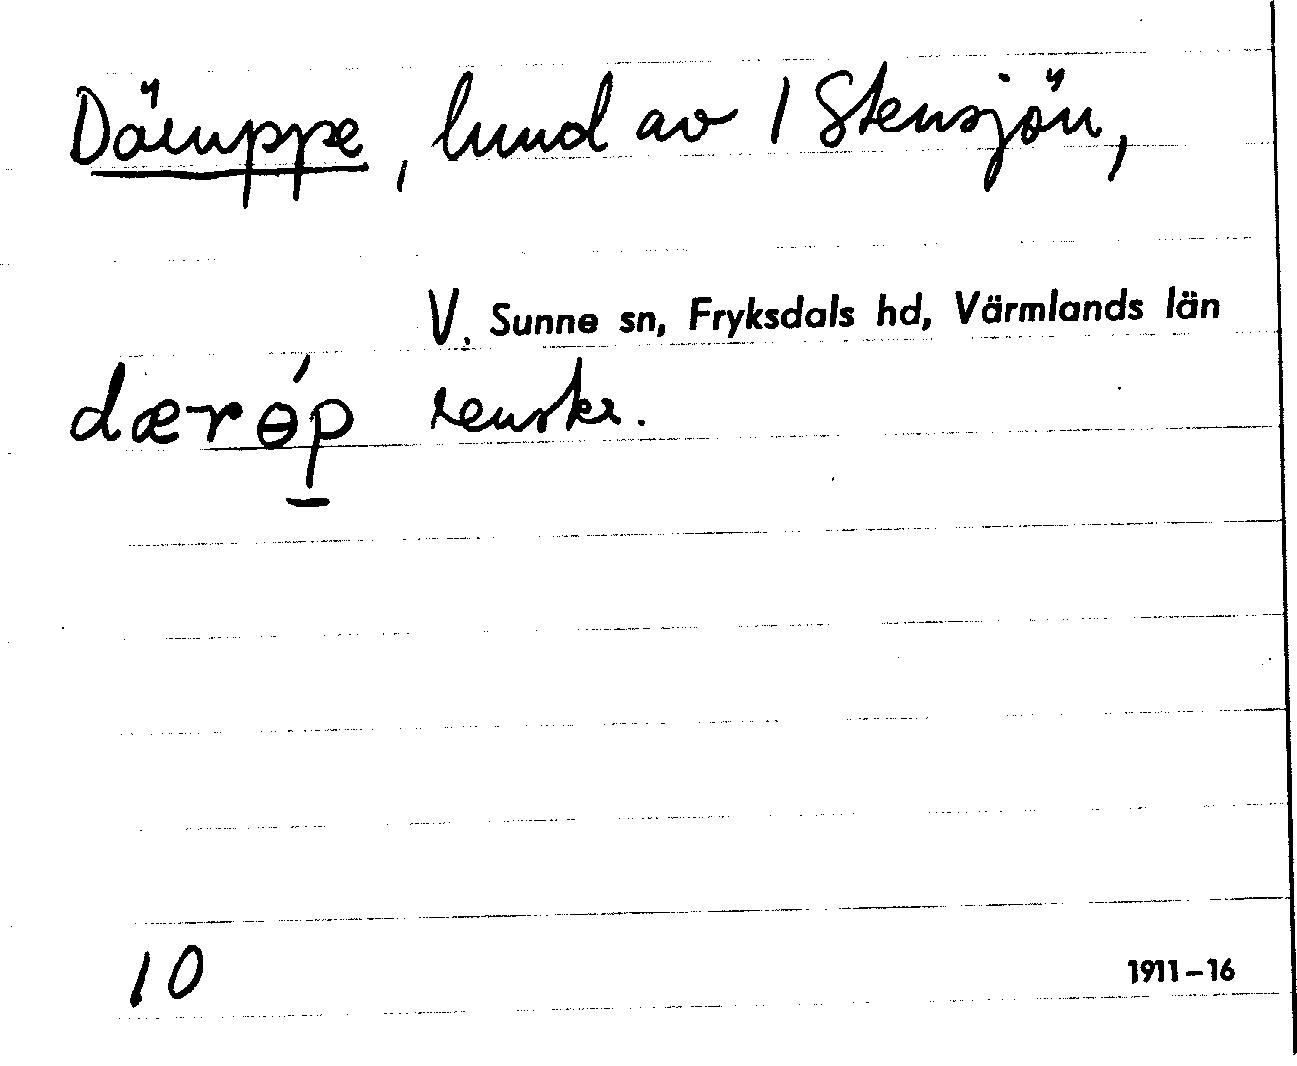 Däruppe, lund av 1 Stensjön,
V. Sunne sn, Fryksdals hd, Värmlands län
dærɵ́p renskr.
10
1911–16